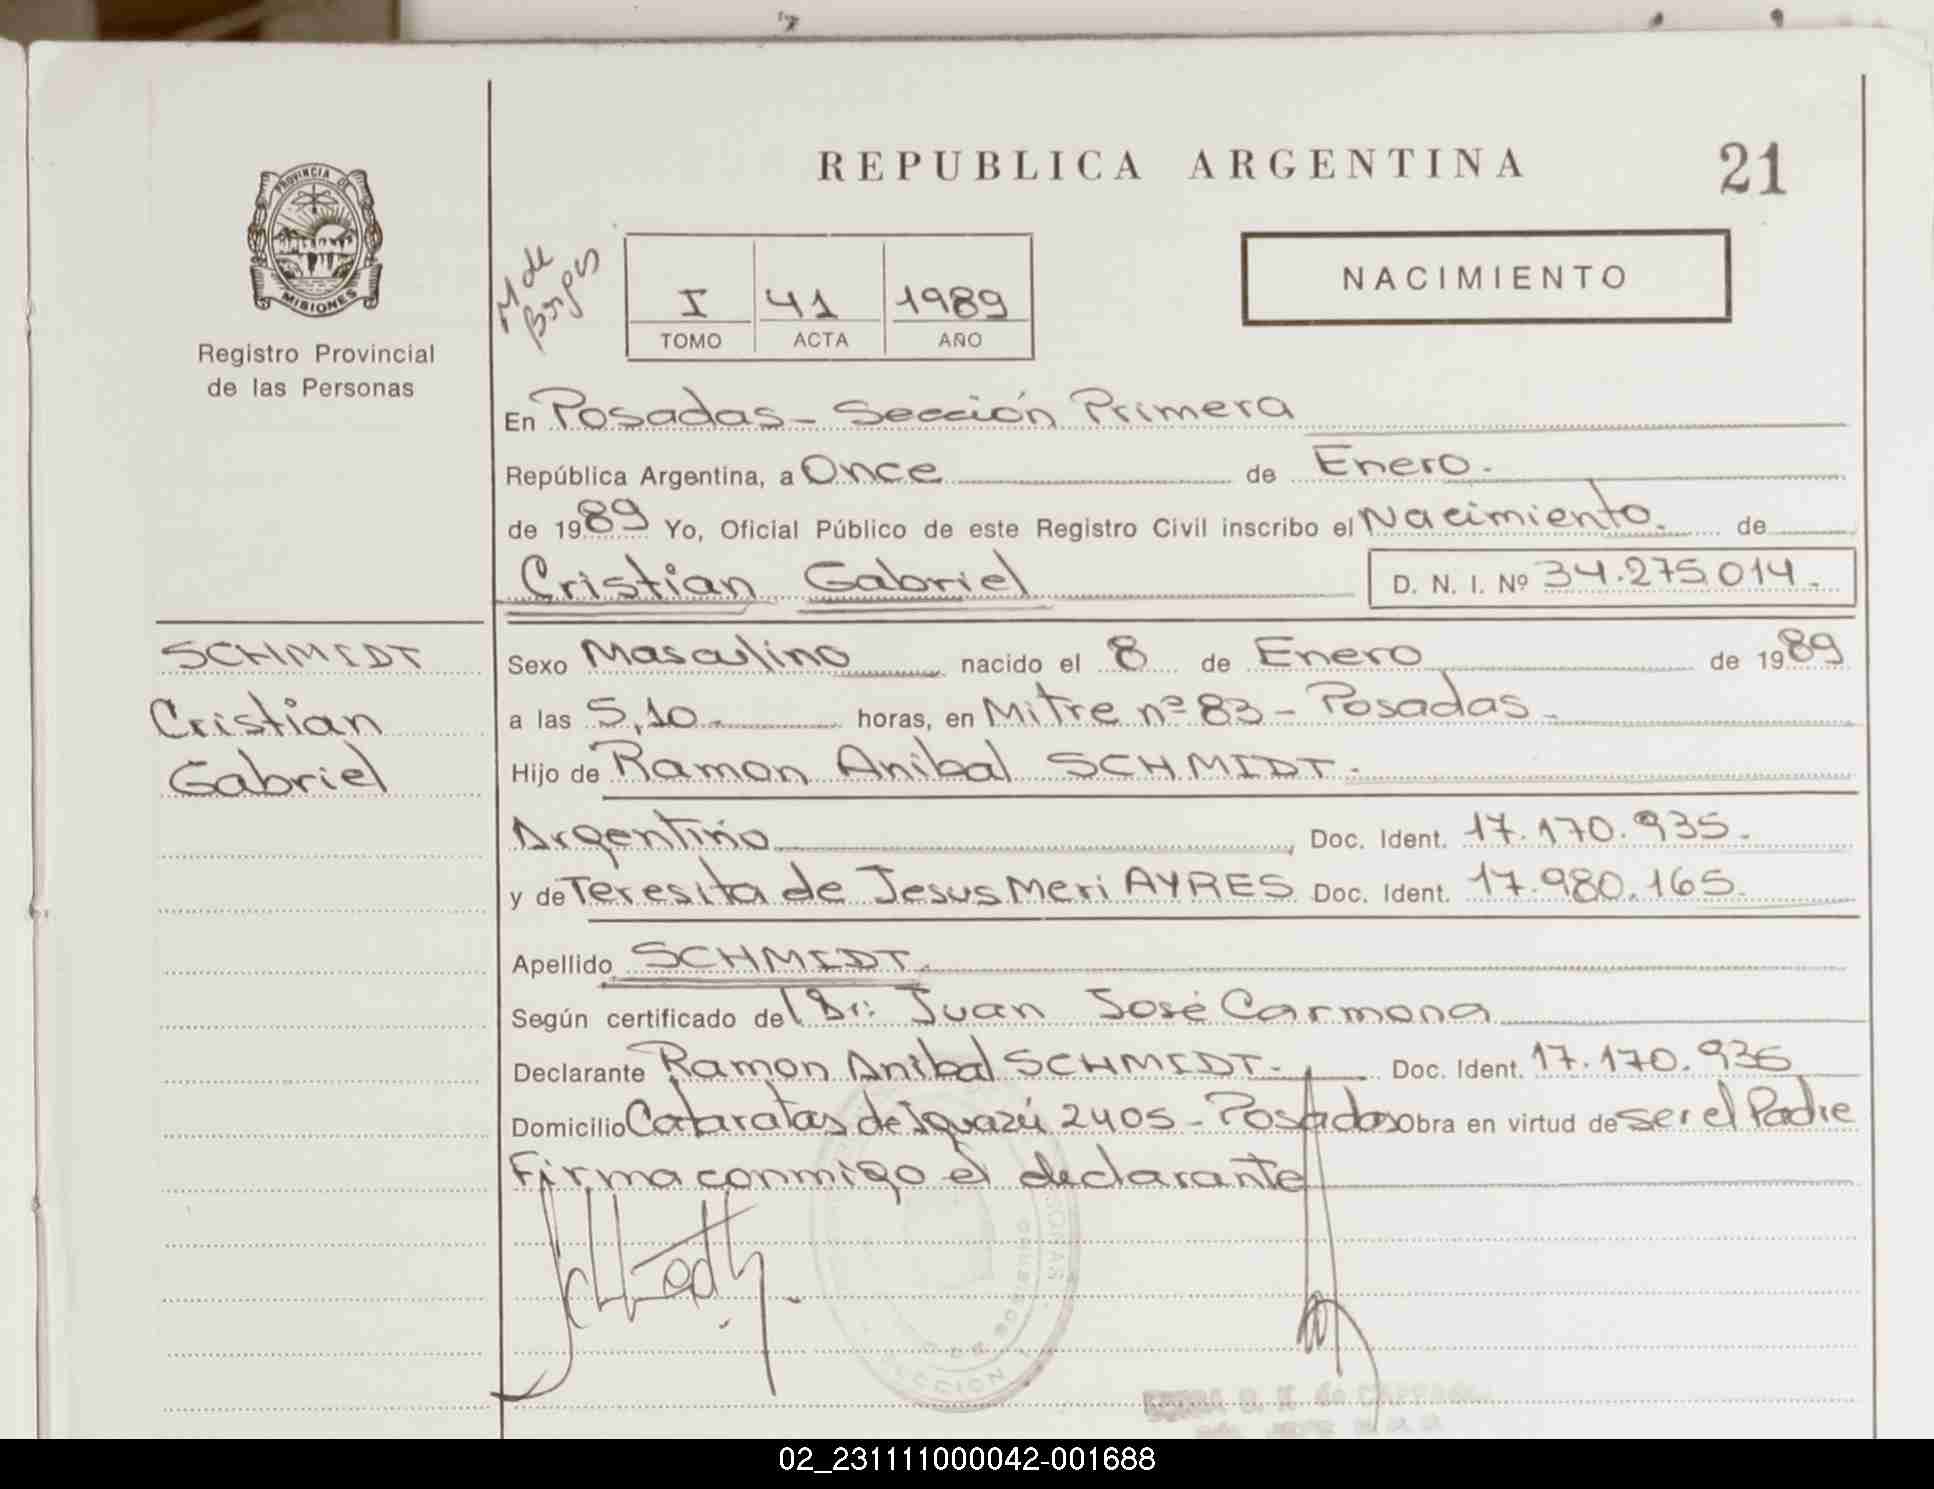 REPUBLICA ARGENTINA
21
PROVINCIA DE
MISIONES
Registro Provincial
de las Personas
M de
Borges
I 41 1989
TOMO ACTA AÑO
NACIMIENTO
En Posadas - Sección Primera
República Argentina, a Once de Enero.
de 1989 Yo, Oficial Público de este Registro Civil inscribo el Nacimiento. de
Cristian Gabriel D. N. I. Nº 34.275.014.
SCHMIDT
Cristian
Gabriel
Sexo Masculino nacido el 8 de Enero de 1989
a las 5,10. horas, en Mitre nº 83 - Posadas.
Hijo de Ramon Anibal SCHMIDT.
Argentino, Doc. Ident. 17.170.935.
y de Teresita de Jesus Meri AYRES Doc. Ident. 17.980.165.
Apellido SCHMIDT.
Según certificado del Dr: Juan José Carmona
Declarante Ramon Anibal SCHMIDT. Doc. Ident. 17.170.936
Domicilio Cataratas de Iguazú 2405 - Posadas Obra en virtud de ser el Padre
Firma conmigo el declarante
02_231111000042-001688